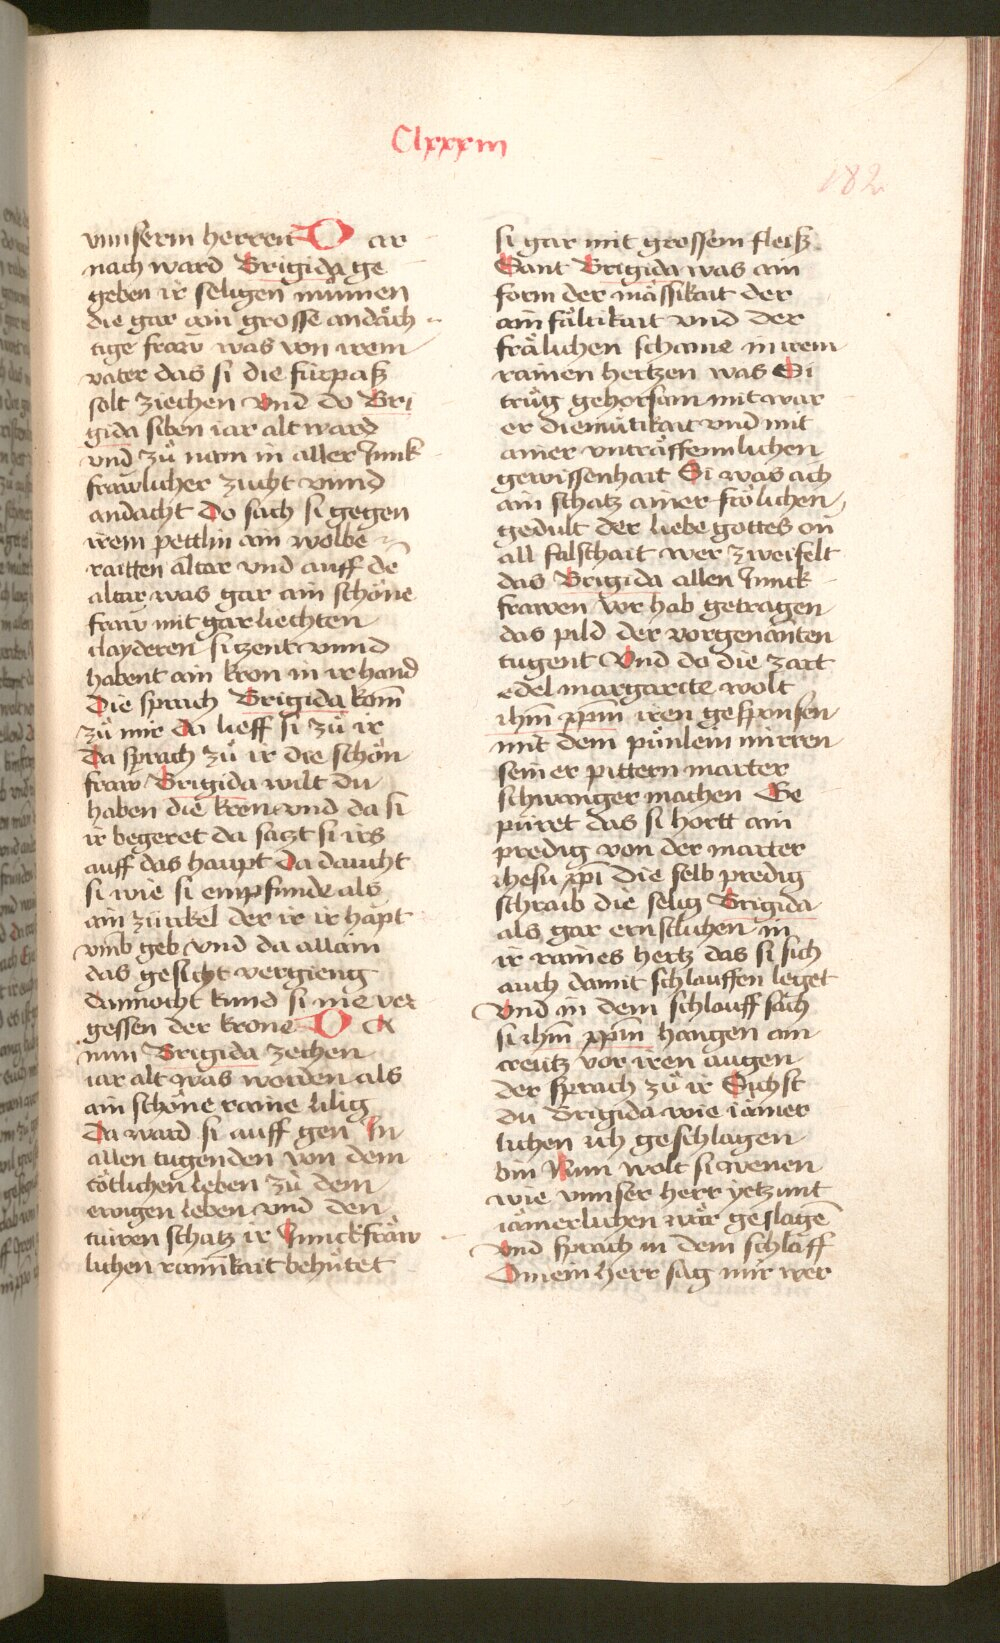 Clxxxiii
182
vnnserm herren D ar
nach ward Brigida ge
geben ir seligen mümen
die gar ain grosse andäch
tige fraw was von irem
vater das si die fürpaß
solt ziechen Vnd do Bri
gida siben iar alt ward
vnd zů nam in aller Junk
frawlicher zucht vnnd
andacht Do sach si gegen
irem pettlin ain wolbe
raitten altar vnd auff dē
altar was gar ain schöne
fraw mit gar liechten
clayderen sizent vnnd
habent ain kron in ir hand
Die sprach Brigida kom̄
zů mir Da lieff si zů ir
Da sprach zů ir die schön
fraw Brigida wilt du
haben die kron vnd da si
ir begeret da sazt si irs
auff das haupt Da daucht
si wie si empfunde als
ain zürkel der ir ir hapt
vmb geb vnd da allain
das gesicht vergieng
dannocht kund si nie ver
gessen der krone D a
nun Brigida zechen
iar alt was worden als
ain schöne raine lilig
Da ward si auff gen In
allen tugenden von dem
tötlichen leben zů dem
ewigen leben vnd den
türen schatz ir Junckfräw
lichen rainikait behütet
si gar mit grossem fleiß
Sant Brigida was ain
form der mässikait der
ainfältikait vnd der
frälichen schame in irem
rainen hertzen was Si
trůg gehorsam mit warer
er diemütikait vnd mit
ainer vnträffennlichen
gewissenhait Si was ach
ain schatz ainer frölichen
gedult der liebe gottes on
all falschait wer zweifelt
das Brigida allen Junck
frawen vor hab getragen
das pild der vorgenanten
tugent Vnd do die zart
edel margarete wolt
ihm̄ xp̄m iren gesponsen
mit dem pünlein mirren
seiner pittern marter
schwanger machen Ge
püret das si hortt ain
predig von der marter
ihesu xp̄i die selb predig
schraib die selig Brigida
als gar ernstlichen in
ir raines hertz das si sich
auch damit schlauffen leget
Vnd in dem schlauff sach
si ihm̄ xp̄m hangen am
creütz vor iren augen
der sprach zů ir Sichst
du Brigida wie iämer
lichen ich geschlagen
bin Nun wolt si wenen
wie vnnser herr yetzunt
iämerlichen wär geslagē
Vnd sprach in dem schlaff
O mein herr sag mir wer